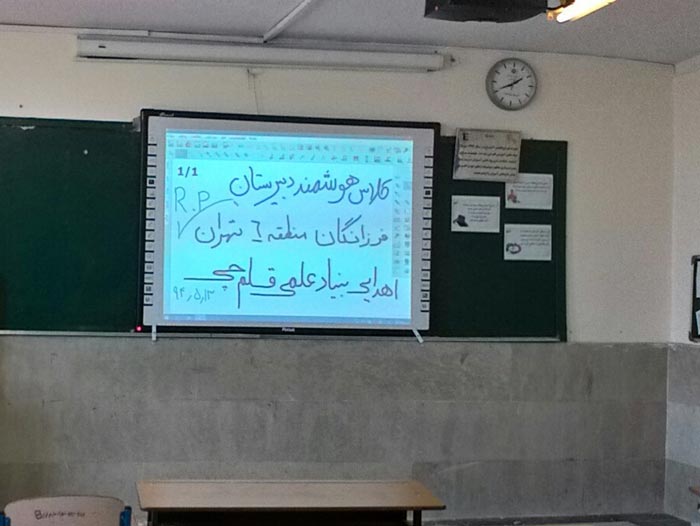 1/1
کلاس هوشمند دبیرستان
R.P
فرزانگان منطقه ۶ تهران
اهدایی بنیاد علمی قلم چی
۹۴,۵,۱۳